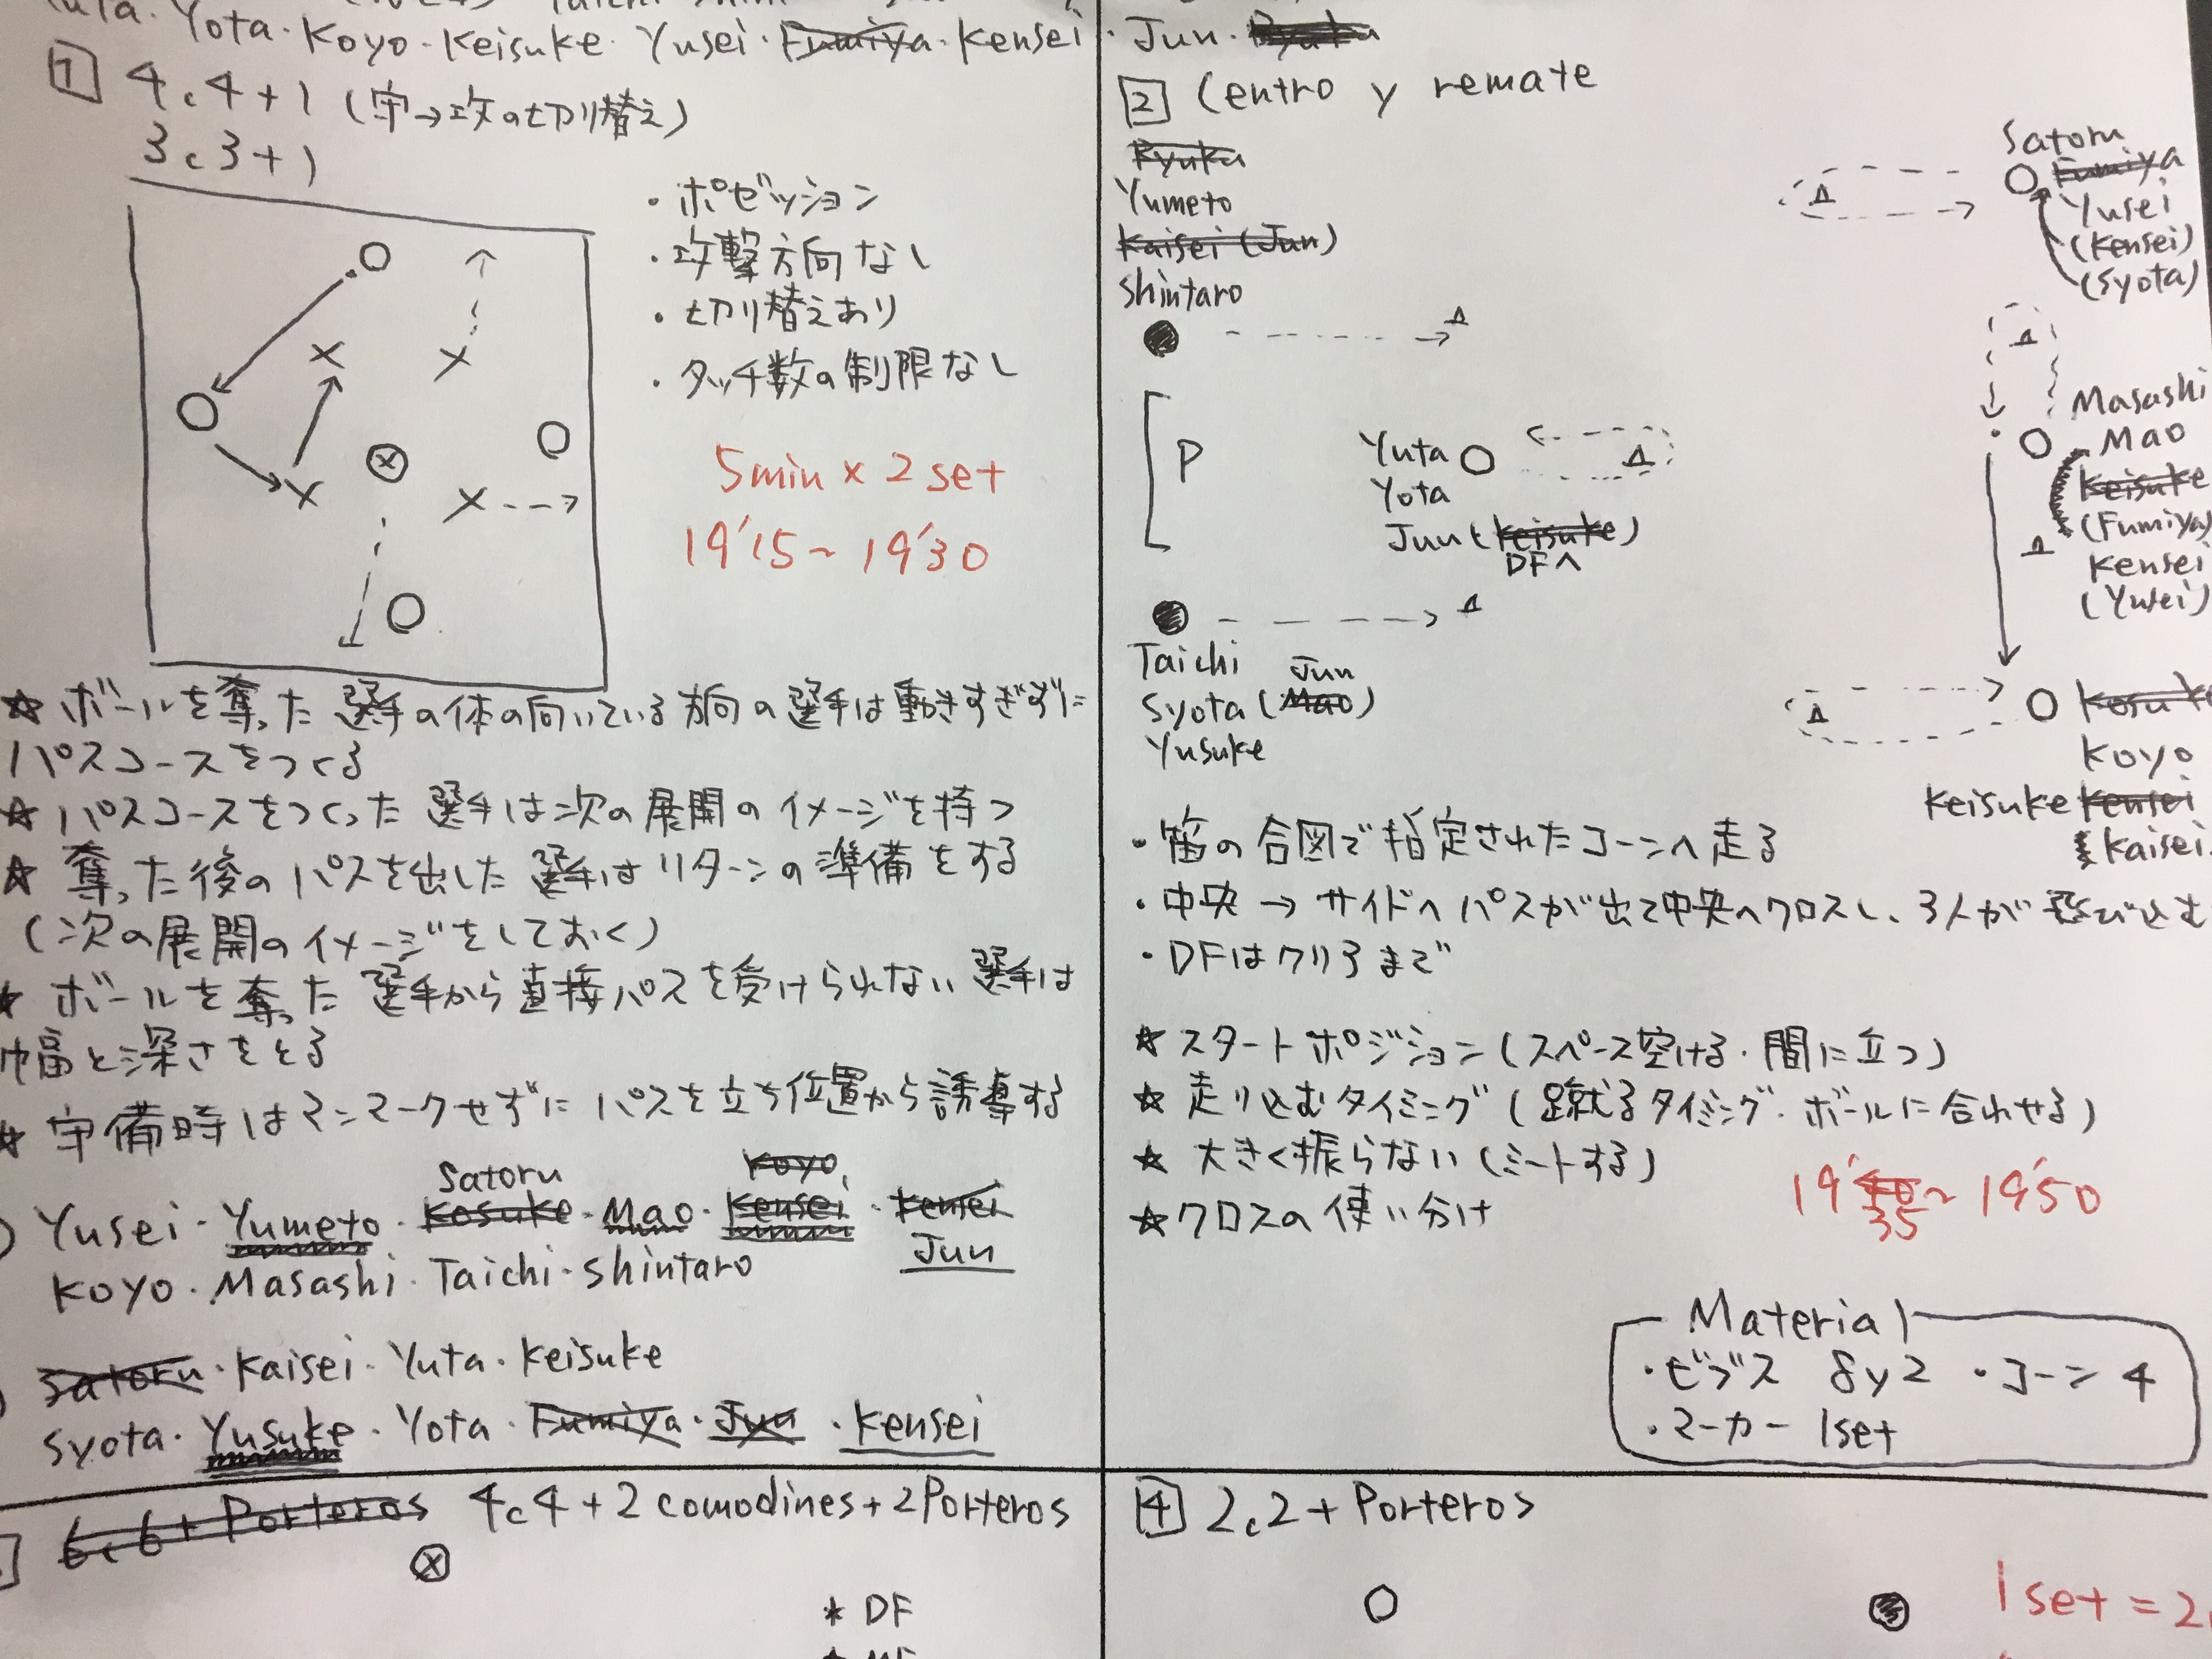 Yota・Koyo・Keisuke・Yusei・Fumiya・Kensei・Jun・
1 4c4+1 (守→攻の切り替え)
3c3+1
・ポゼッション
・攻撃方向なし
・切り替えあり
・タッチ数の制限なし
5min×2set
19'15~19'30
★ボールを奪った選手の体の向いている方向の選手は動きすぎずに
パスコースをつくる
★パスコースをつくった選手は次の展開のイメージを持つ
★奪った後のパスを出した選手はリターンの準備をする
(次の展開のイメージをしておく)
★ボールを奪った選手から直接パスを受けられない選手は
幅と深さをとる
★守備時はマンマークせずにパスを立ち位置から誘導する
Satoru Koyo
Yusei・Yumeto・Kosuke・Mao・Kensei・Kensei
Jun
Koyo・Masashi・Taichi・Shintaro
Satoru・Kaisei・Yuta・Keisuke
Syota・Yusuke・Yota・Fumiya・Jun・Kensei
2 Centro y remate
Ryuka
Yumeto
Kaisei (Jun)
Shintaro
Satoru
Fumiya
Yusei
(Kensei)
(Syota)
Masashi
Mao
Keisuke
(Fumiya)
Kensei
(Yusei)
P
Yuta
Yota
Jun (Keisuke)
DFへ
Taichi
Jun
Syota (Mao)
Yusuke
Koyo
Keisuke Kensei
Kaisei
・笛の合図で指定されたコーンへ走る
・中央→サイドへパスが出て中央へクロスし、3人が飛び込む
・DFはクリアまで
★スタートポジション(スペース空ける・間に立つ)
★走り込むタイミング(蹴るタイミング・ボールに合わせる)
★大きく振らない(ミートする)
★クロスの使い分け
19'40~19'50
35
Material
・ビブス 8y2 ・コーン 4
・マーカー 1set
6c6+Porteros 4c4+2comodines+2Porteros
* DF
4 2c2+Porteros
1set=2